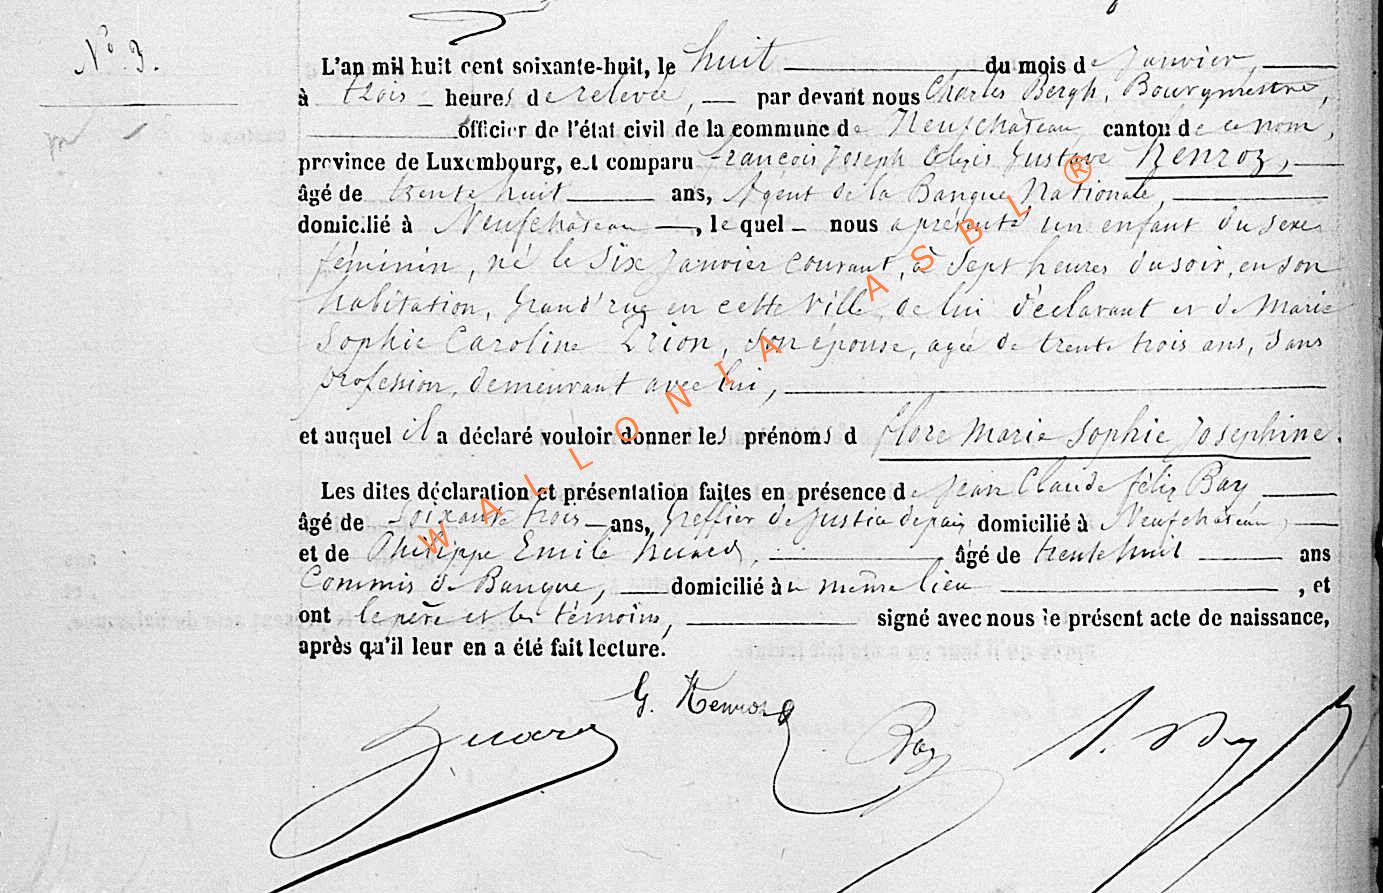 N° 3.
L'an mil huit cent soixante-huit, le huit du mois de Janvier,
à trois heures de relevée, par devant nous Charles Bergh, Bourgmestre,
officier de l'état civil de la commune de Neufchâteau canton de ce nom,
province de Luxembourg, est comparu François Joseph Gustave Henroz,
âgé de trente huit ans, Agent de la Banque Nationale,
domicilié à Neufchâteau, lequel nous a présenté un enfant du sexe
féminin, né le Six Janvier courant, à Sept heures du soir, en son
habitation, Grand'rue en cette Ville, de lui déclarant et de Marie
Sophie Caroline Orion, son épouse, agée de trente trois ans, sans
profession, demeurant avec lui,
et auquel il a déclaré vouloir donner les prénoms d Flore Marie Sophie Josephine.
Les dites déclaration et présentation faites en présence de Jean Claude Félix Bay,
âgé de Soixante trois ans, Greffier de Justice de paix domicilié à Neufchateau,
et de Philippe Emile âgé de trente huit ans
Commis de Banque, domicilié à même lieu, et
ont le père et les témoins, signé avec nous le présent acte de naissance,
après qu'il leur en a été fait lecture.
G. Henroz
Bay
WALLONIA ASBL ®